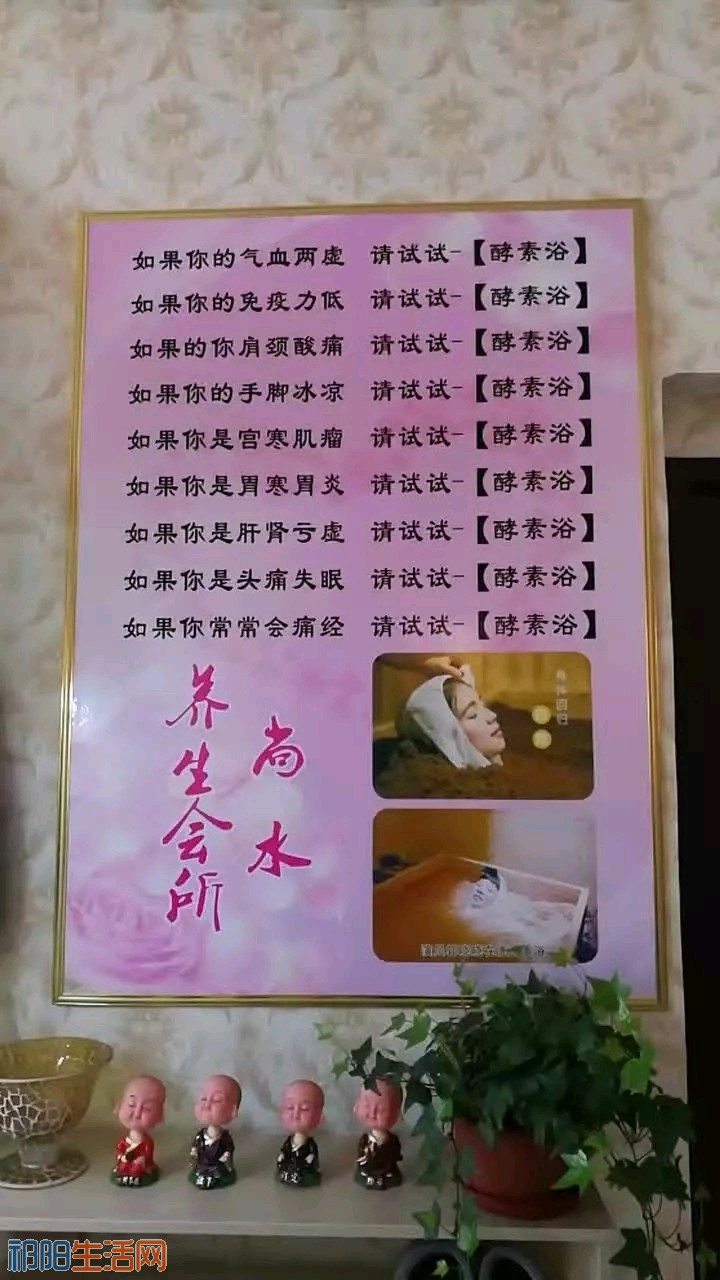 如果你的气血两虚 请试试-【酵素浴】
如果你的免疫力低 请试试-【酵素浴】
如果的你肩颈酸痛 请试试-【酵素浴】
如果你的手脚冰凉 请试试-【酵素浴】
如果你是宫寒肌瘤 请试试-【酵素浴】
如果你是胃寒胃炎 请试试-【酵素浴】
如果你是肝肾亏虚 请试试-【酵素浴】
如果你是头痛失眠 请试试-【酵素浴】
如果你常常会痛经 请试试-【酵素浴】
尚水
养生会所
祁阳生活网